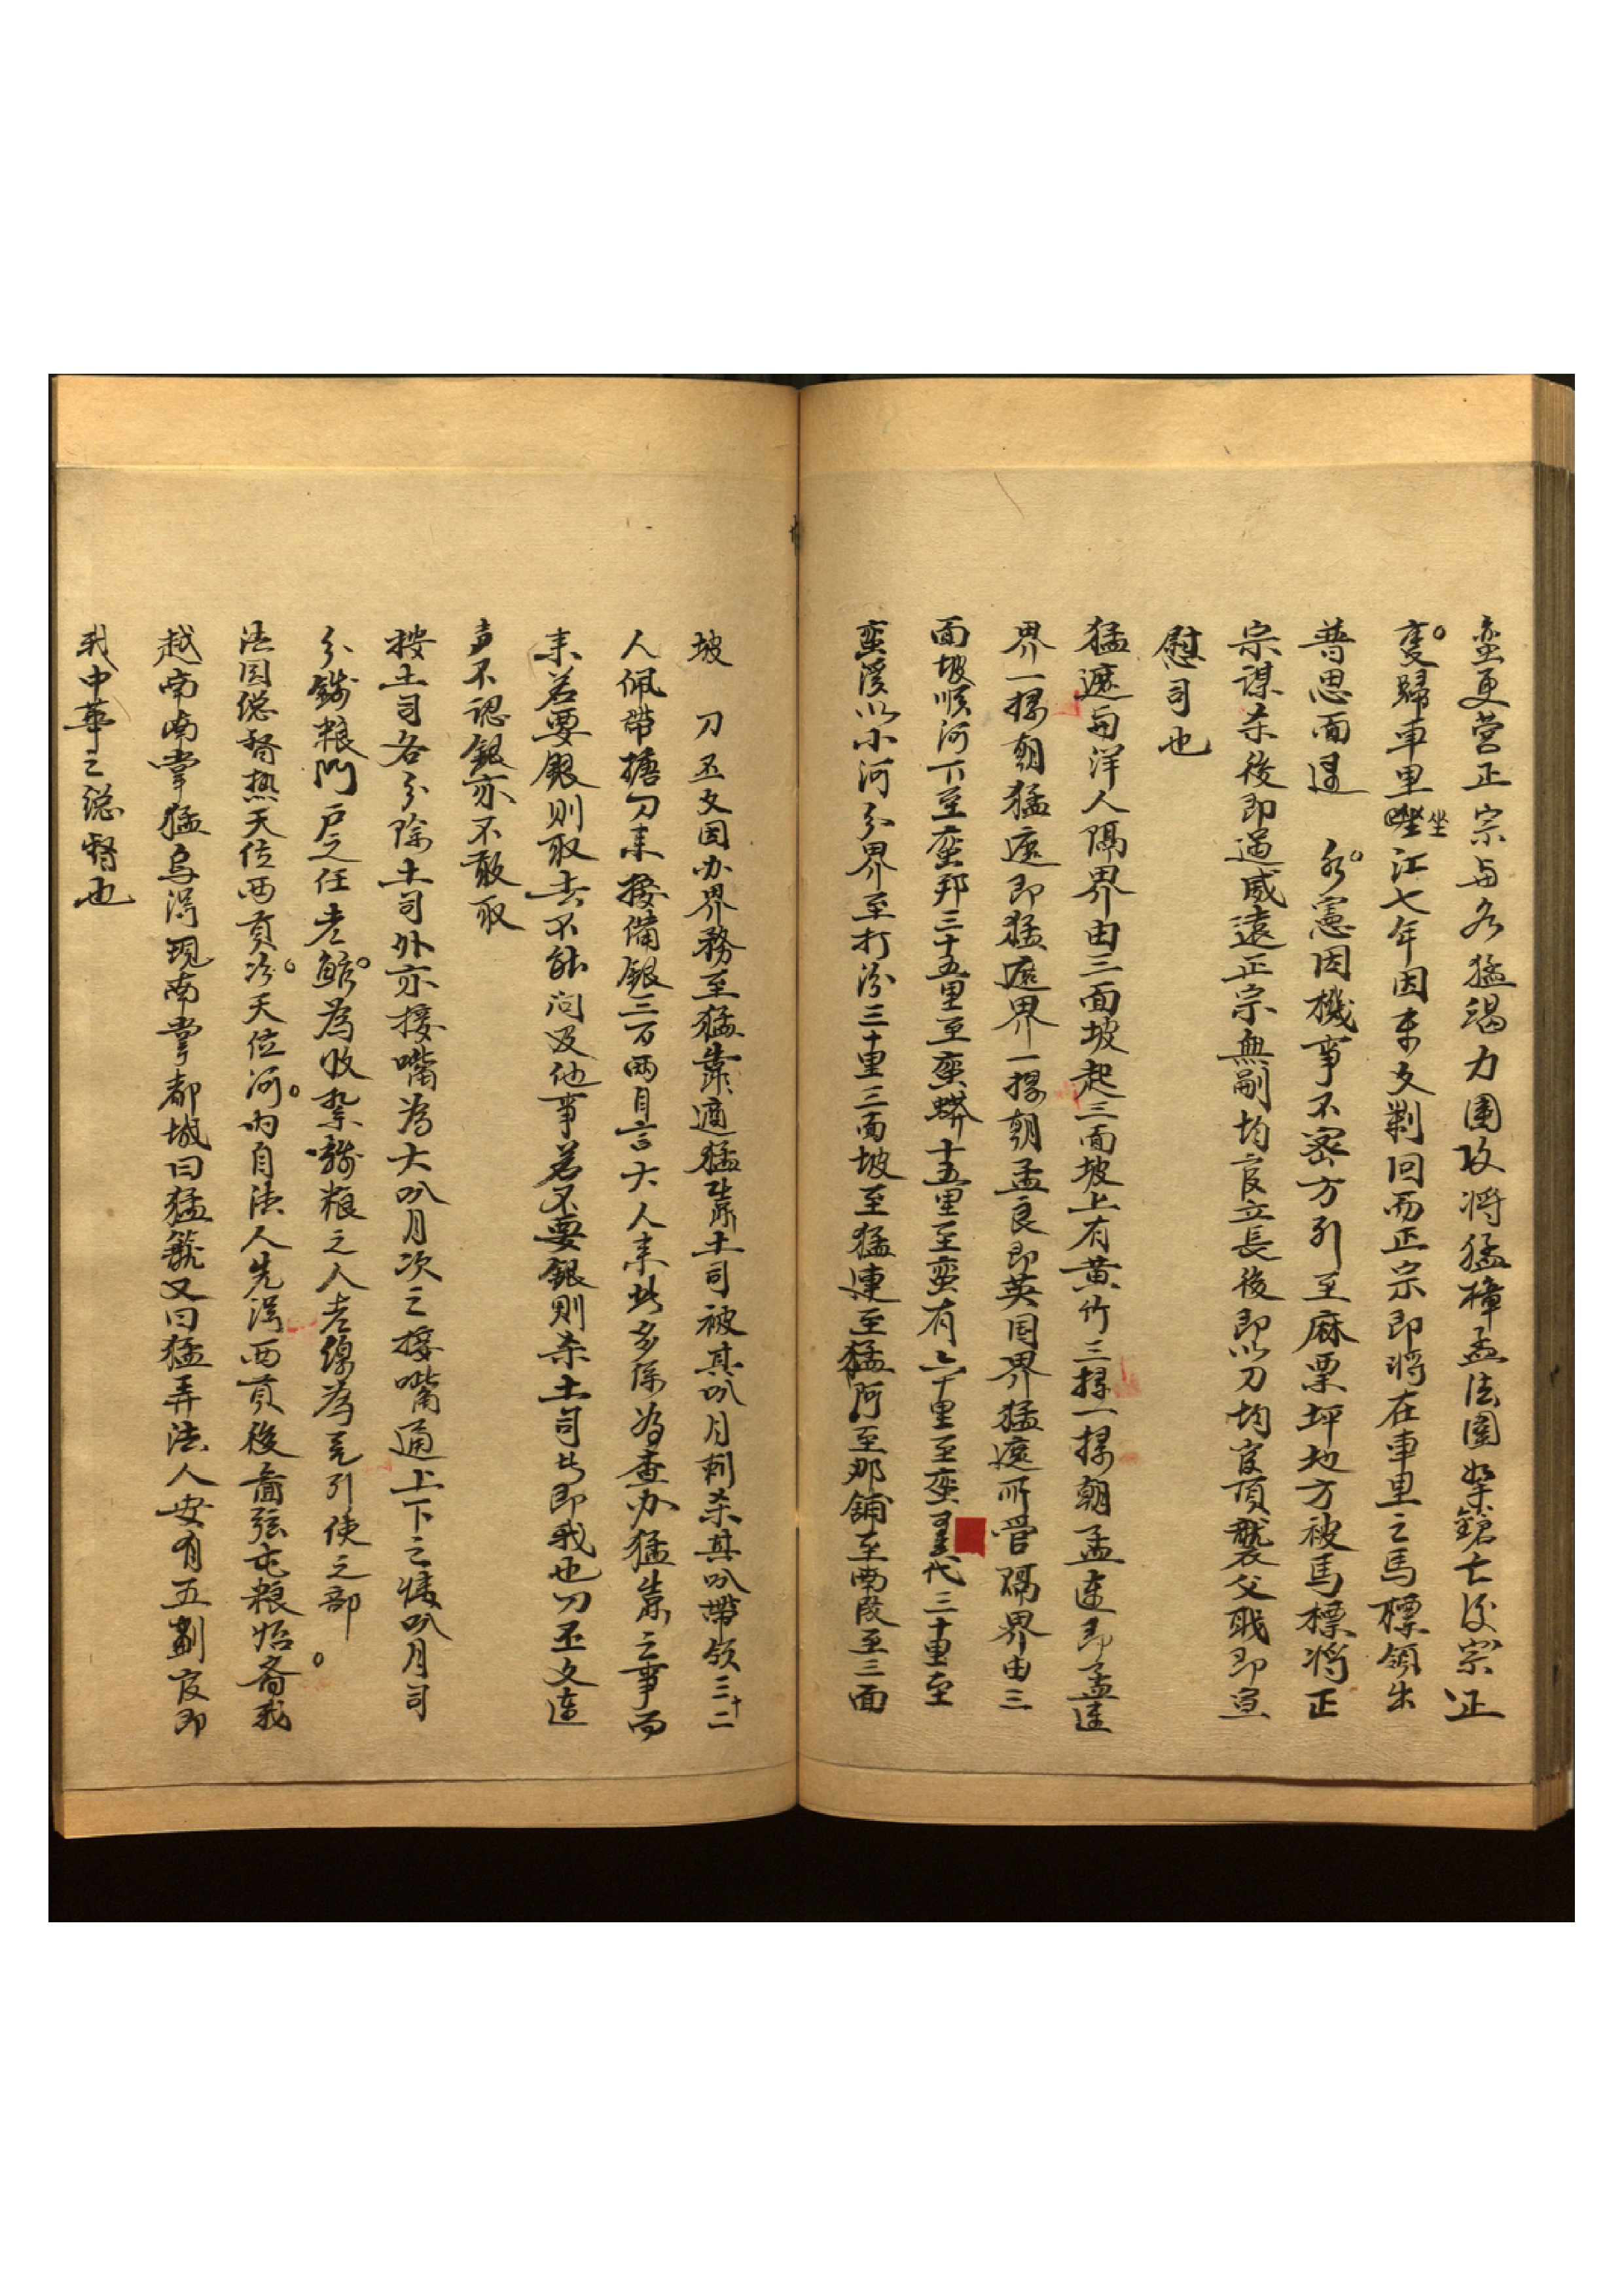 蛮更营正宗与各猛竭力围攻将猛樟孟法围禁鎗亡後宗正
隻歸車里坐江七年因东文剿回而正宗即将在車里之馬標領出
普思面退 永憲因機事不密方引至麻栗坪地方被馬標将正
宗謀杀後即過威遠正宗無嗣均官立長後即以刀均官頂襲父戢即宣
慰司也
猛遮与洋人隔界由三面坡起三面坡上有黄竹三撂一撂朝孟连即孟连
界一撂朝猛遮即猛遮界一撂朝孟良即英国界猛遮所管隔界由三
面坡顺河下至蛮邦三十五里至蛮蟒十五里至蛮有六十里至蛮代三十里至
蛮溪以小河分界至打汾三十里三面坡至猛連至猛阿至那舖至南段至三面
坡 刀丕文因办界務至猛靠適猛靠土司被其叭月刺杀其叭带领三十二
人佩带搪刀来接備銀三百两自言大人来此多係为查办猛靠之事而
来若要銀则取去不能问及他事若不要銀则杀土司者即我也刀丕文連
声不認銀亦不敢取
按土司各分除土司外亦接嘴為大叭月次之接嘴通上下之情叭月司
分錢粮門戶之任老鮓為收紮錢粮之人老線為先引使之部
法国総督热天位西貢次天位河内自法人先得西貢後蓄弦屯粮始裔我
越南南掌猛烏得現南掌都城曰猛龍又曰猛弄法人安有五劃官即
我中華之總督也